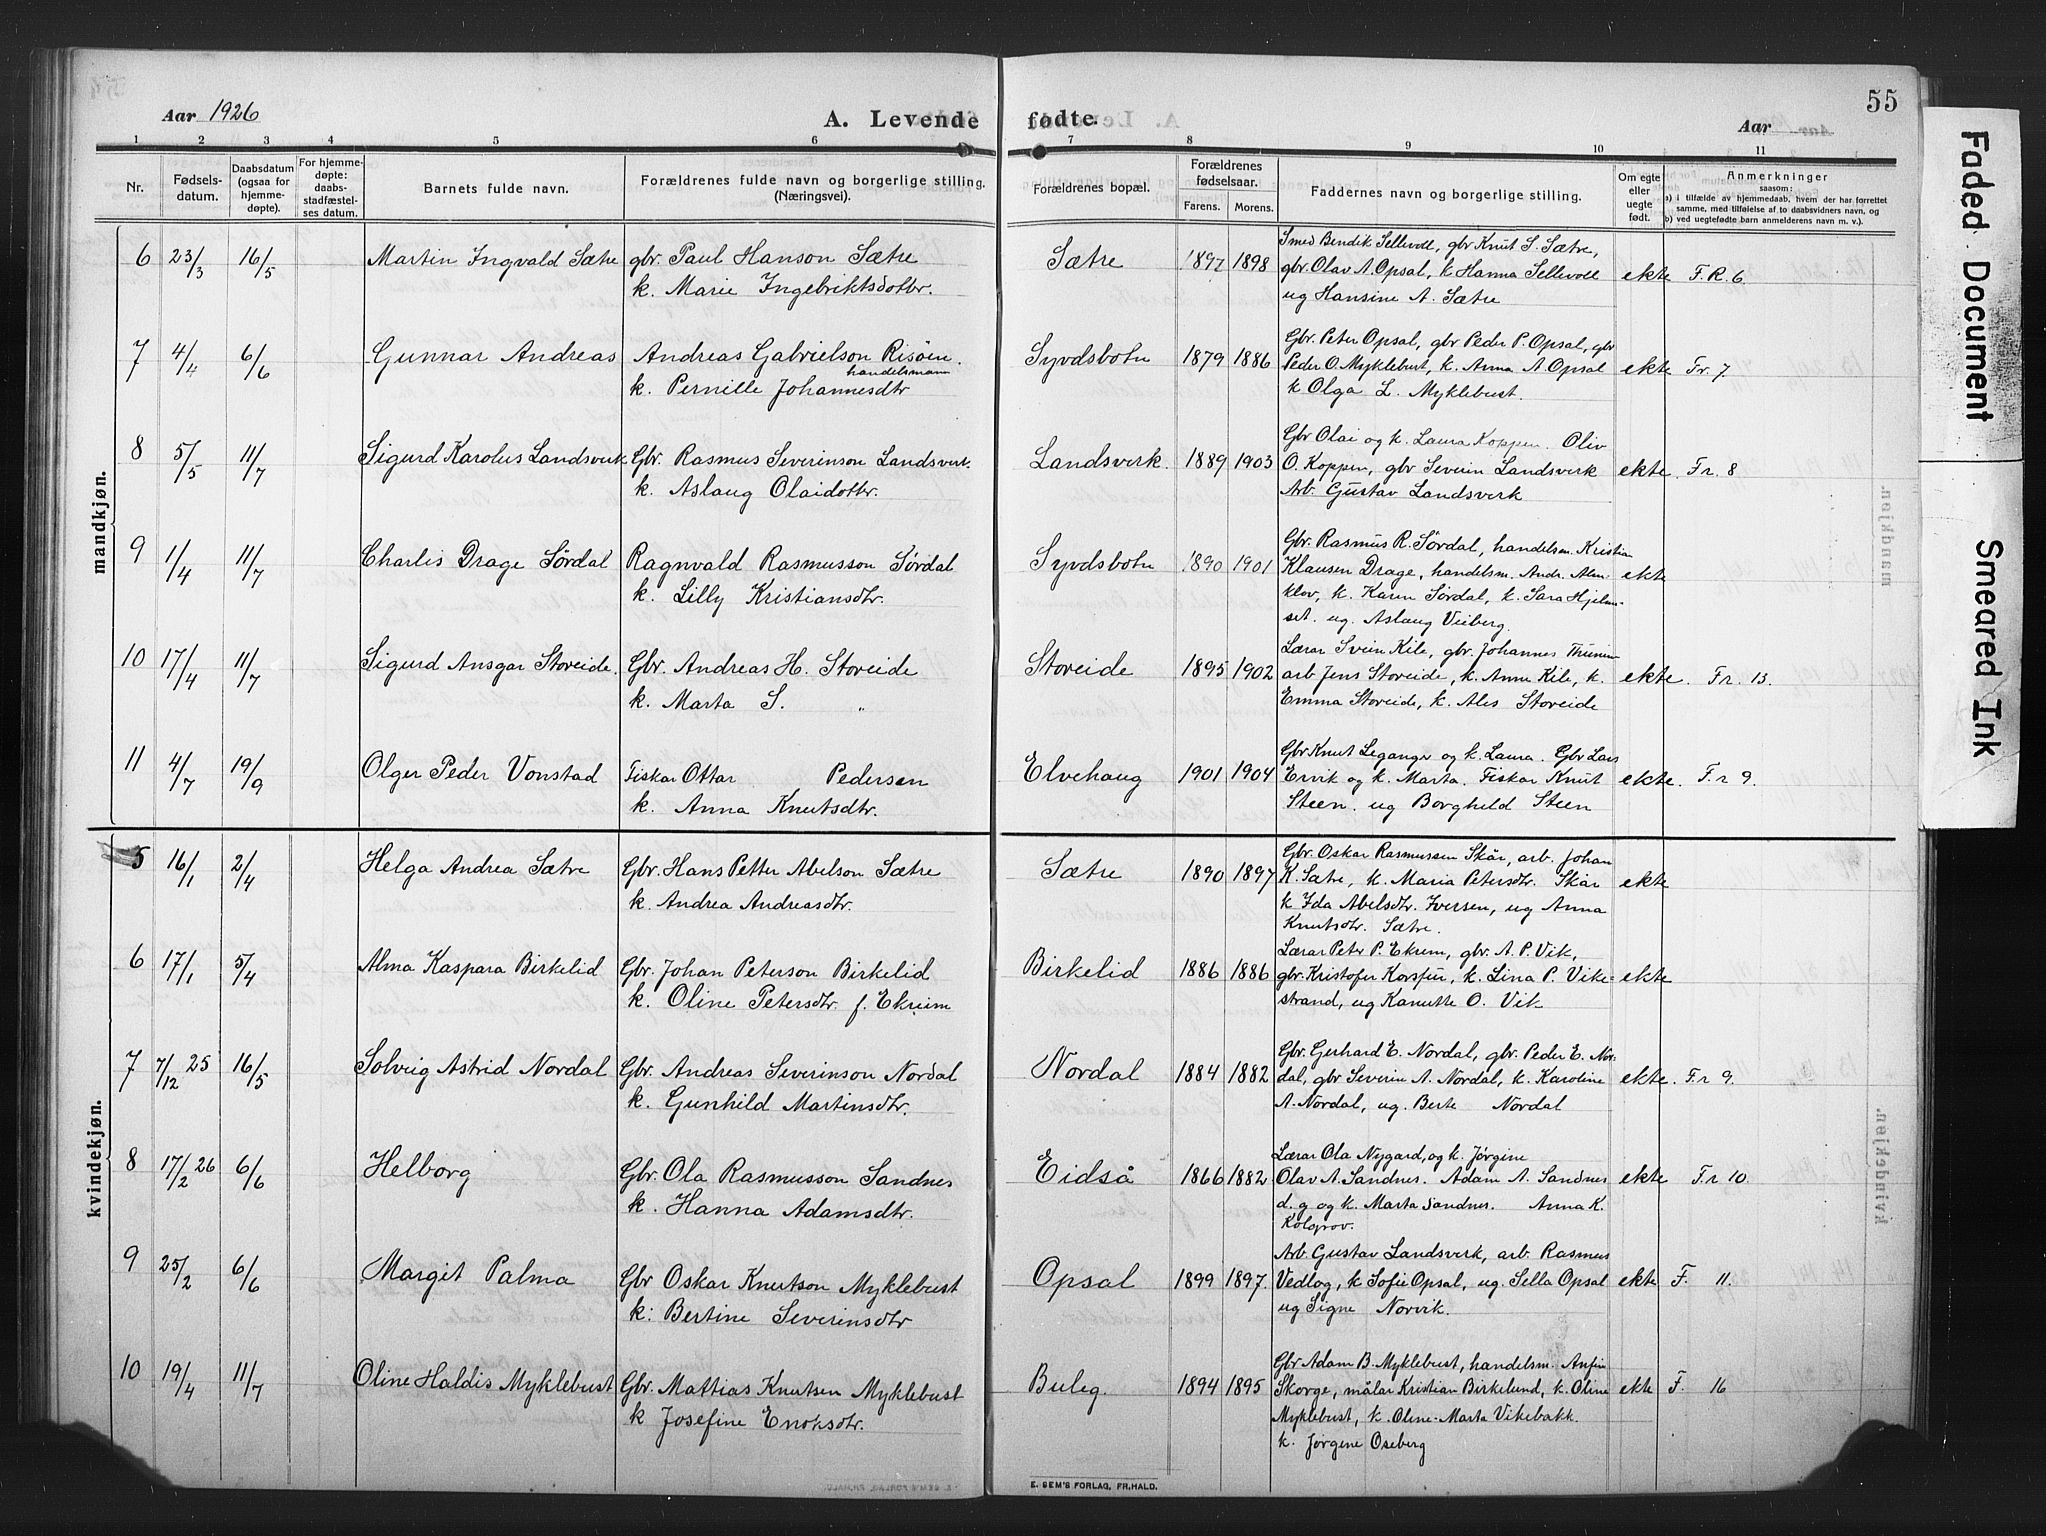 Aar 1926
A. Levende fødte.
Aar
55
1 2 3 4 5 6 7 8 9 10 11
Nr.
Fødsels-
datum.
Daabsdatum
(ogsaa for
hjemme-
døpte).
For hjemme-
døpte:
daabs-
stadfæstel-
ses datum.
Barnets fulde navn.
Forældrenes fulde navn og borgerlige stilling.
(Næringsvei).
Forældrenes bopæl.
Forældrenes
fødselsaar.
Farens. Morens.
Faddernes navn og borgerlige stilling.
Om egte
eller
uegte
født.
Anmerkninger
saasom:
a) i tilfælde av hjemmedaab, hvem der har forrettet
samme, med tilføielse af to daabsvidners navn, og
b) ved uegtefødte barn anmelderens navn m. v.).
mandkjøn.
6 23/3 16/5 Martin Ingvald Sætre
gbr. Paul Hanson Sætre
k. Marie Ingebriktsdotter.
Sætre 1897 1898
Smed Bendik Sellevoll, gbr Knut S. Sætre,
gbr. Olav A. Opsal, k Hanna Sellevoll
ug Hansine A. Sætre
ekte F. R. 6.
7 4/4 6/6 Gunnar Andreas
Andreas Gabrielson Risöen.
handelsmann
k. Pernille Johannesdtr
Syvdsbotn 1879 1886
Gbr. Peter Opsal, gbr Peder P. Opsal, gbr
Peder O. Myklebust, k. Anna A Opsal
k Olga L. Myklebust.
ekte Fr. 7.
8 5/5 11/7 Sigurd Karolus Landsverk
Gbr. Rasmus Severinson Landsverk.
k. Aslaug Olaidotter.
Landsverk. 1889 1903
Gbr Olai og k. Laura Koppen. Oliv
O. Koppen, gbr Severin Landsverk
Arb. Gustav Landsverk
ekte Fr. 8
9 1/4 11/7 Charlis Drage Sördal
Ragnvald Rasmusson Sördal
k. Lilly Kristiansdtr.
Syvdsbotn 1890 1901
Gbr. Rasmus R. Sördal, handelsm. Kristian
Klausen Drage, handelsm. Andr. Alm-
klov, k. Karen Sördal, k. Sara Hjelme-
set. ug. Aslaug Veiberg.
ekte
10 17/4 11/7 Sigurd Ansgar Storeide.
Gbr. Andreas H. Storeide
k. Marta S. "
Storeide 1895 1902
Lærar Svein Kile, gbr. Johannes
arb Jens Storeide, k. Anne Kile, k.
Emma Storeide, k. Ales Storeide
ekte. Fr. 13.
11 4/7 19/9 Olger Peder Vonstad
Fiskar Ottar Pedersen
k. Anna Knutsdtr.
Elvehaug 1901 1904
Gbr Knut Leganger og k. Laura. Gbr Lars
Ervik og k. Marta. Fiskar Knut
Steen. ug Borghild Steen
ekte. F.r 9.
kvindekjøn.
5 16/1 2/4 Helga Andrea Sætre
Gbr. Hans Petter Abelson Sætre
k. Andrea Andreasdtr.
Sætre 1890 1897
Gbr. Oskar Rasmussen Skår, arb. Johan
K. Sætre, k. Maria Petersdtr. Skår
k Ida Abelsdtr. Iversen, ug Anna
Knutsdtr. Sætre.
ekte
6 17/1 5/4 Alma Kaspara Birkelid
Gbr. Johan Peterson Birkelid
k. Oline Petersdtr. f. Ekrem
Birkelid 1886 1886
Lærar Peter P. Ekrem, gbr. A. P. Vik,
gbr. Kristofer Korsfur, k. Lina P. Vike-
strand, ug Kanutte O. Vik
ekte
7 7/12 25 16/5 Solveig Astrid Nordal
Gbr. Andreas Severinson Nordal
k. Gunhild Martinsdtr.
Nordal 1884 1882
Gbr. Gerhard E. Nordal, gbr. Peder E. Nor-
dal, gbr Severin A. Nordal, k. Karoline
A. Nordal, ug. Berte Nordal
ekte. F.r 9.
8 17/2 26 6/6 Helborg
Gbr. Ola Rasmusson Sandnes
k. Hanna Adamsdtr.
Eidså 1866 1882
Lærar Ola Nygard, og k. Jørgine
Olav A. Sandnes. Adam A. Sandnes
d. g og k. Marta Sandnes. Anna K.
Kolgrov.
ekte F.r 10.
9 25/2 6/6 Margit Palma
Gbr Oskar Knutson Myklebust
k: Bertine Severinsdtr
Opsal 1899 1897.
Arb. Gustav Landsverk, arb. Rasmus
Vedlog, k Sofie Opsal, ug. Sella Opsal
ug Signe Norvik.
ekte F. 11.
10 19/4 11/7 Oline Haldis Myklebust
Gbr. Mattias Knutsen Myklebust
k Josefine Enoksdtr.
Buleg. 1894 1895
Gbr Adam B. Myklebust, handelsm. Anfin
Skorge, målar Kristian Birkelund, k. Oline
Myklebust, k. Oline-Marta Vikebakk.
k. Jørgene Oseberg
ekte F. 16
E. SEM'S FORLAG, FR.HALD.
Faded Document
Smeared Ink